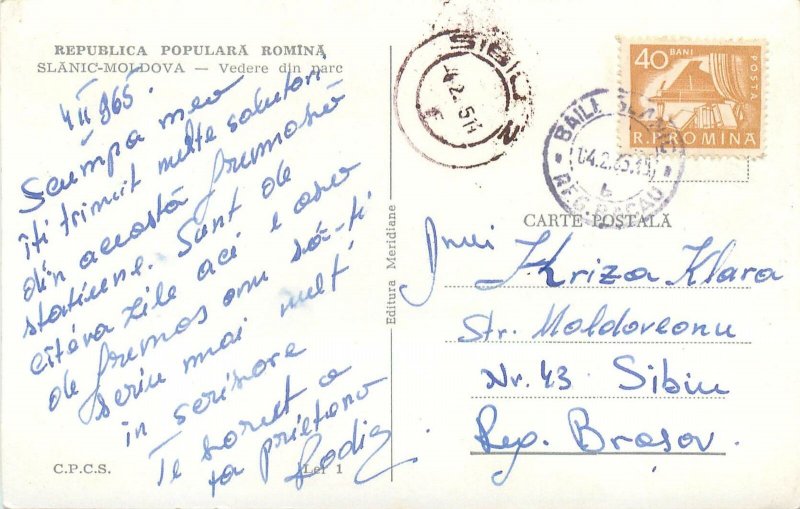 REPUBLICA POPULARĂ ROMÎNĂ
SLĂNIC-MOLDOVA — Vedere din parc
4 II 965.
Scumpa mea
îți trimit multe salutări
din această frumoasă
stațiune. Sunt de
cîteva zile aci e
de frumos am să-ți
scriu mai mult
în scrisore
Te sărut a
ta prietena
C.P.C.S.
Lei 1
Editura Meridiane
SIBIU
BAILE SLANIC
04.2.65.
REG. BACAU
40 BANI
POSTA
R.P.ROMINA
CARTE POSTALA
Kriza Klara
Str. Moldoveanu
Nr. 43 Sibiu
Reg. Brașov.